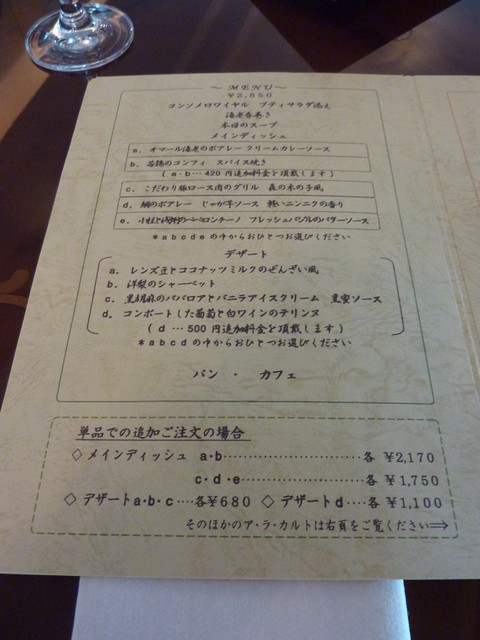 ～ MENU ～
￥2,850
コンソメロワイヤル プティサラダ添え
海老春巻き
本日のスープ
メインディッシュ
a. オマール海老のポアレー クリームカレーソース
b. 若鶏のコンフィ スパイス焼き
( a・b… 420 円追加料金を頂戴します )
c. こだわり豚ロース肉のグリル 森の木の子風
d. 鯛のポアレー じゃが芋ソース 軽いニンニクの香り
e. 小柱と のペペロンチーノ フレッシュバジルのバターソース
＊a b c d e の中からおひとつお選びください
デザート
a. レンズ豆とココナッツミルクのぜんざい風
b. 洋梨のシャーベット
c. 黒胡麻のババロアとバニラアイスクリーム 黒蜜ソース
d. コンポートした葡萄と白ワインのテリンヌ
( d … 500 円追加料金を頂戴します )
＊a b c d の中からおひとつお選びください
パン ・ カフェ
単品での追加ご注文の場合
◇メインディッシュ a・b……………………各 ￥2,170
c・d・e……………………各 ￥1,750
◇デザートa・b・c ….各￥680 ◇デザートd….各 ￥1,100
そのほかのア・ラ・カルトは右頁をご覧ください⇒